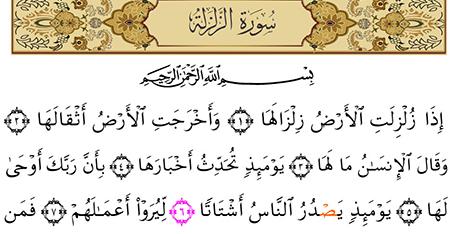 سُورَةُ الزَّلْزَلَةِ
بِسْمِ ٱللَّهِ ٱلرَّحْمَٰنِ ٱلرَّحِيمِ
إِذَا زُلْزِلَتِ ٱلْأَرْضُ زِلْزَالَهَا ﴿١﴾ وَأَخْرَجَتِ ٱلْأَرْضُ أَثْقَالَهَا ﴿٢﴾
وَقَالَ ٱلْإِنسَٰنُ مَا لَهَا ﴿٣﴾ يَوْمَئِذٍ تُحَدِّثُ أَخْبَارَهَا ﴿٤﴾ بِأَنَّ رَبَّكَ أَوْحَىٰ
لَهَا ﴿٥﴾ يَوْمَئِذٍ يَصْدُرُ ٱلنَّاسُ أَشْتَاتًا ﴿٦﴾ لِّيُرَوْا۟ أَعْمَٰلَهُمْ ﴿٧﴾ فَمَن